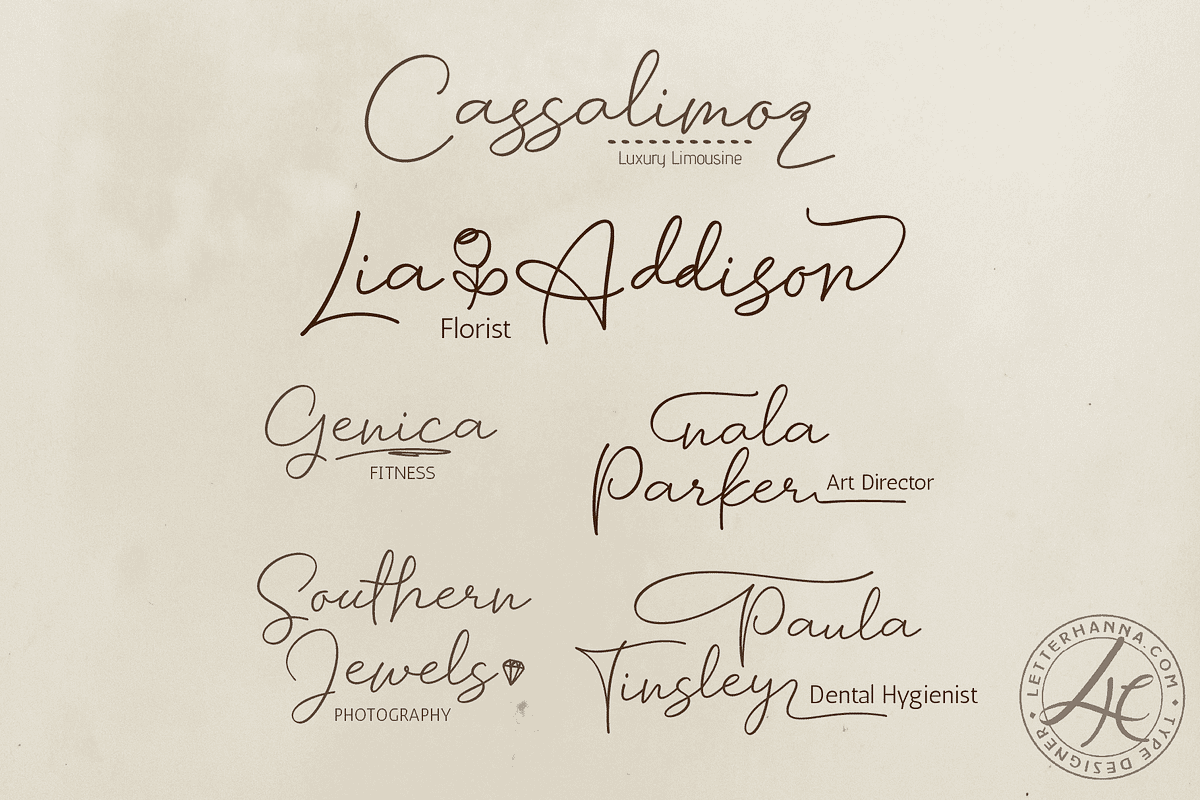 Cassalimoz
Luxury Limousine
Lia Addison
Florist
Genica
FITNESS
nala
Parker
Art Director
Southern
Jewels
PHOTOGRAPHY
Paula
Tinsley
Dental Hygienist
LETTERHANNA.COM • TYPE DESIGNER •
LH